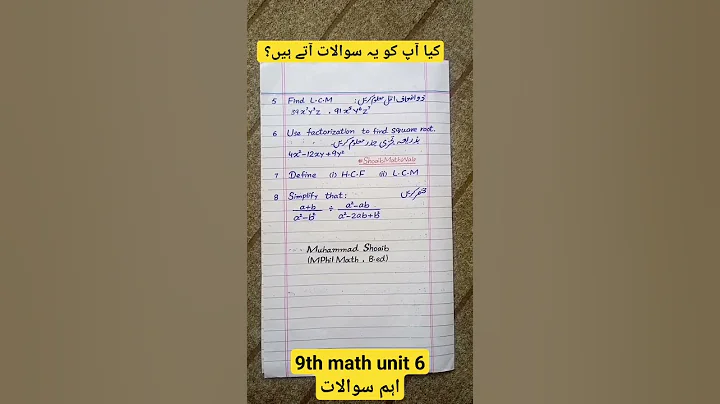 کیا آپ کو یہ سوالات آتے ہیں؟
5 Find L.C.M : ذو اضعاف اقل معلوم کریں
39x⁷y³z , 91x⁵y⁶z⁷
6 Use factorization to find square root.
بذریعہ تجزی جذر معلوم کریں۔
4x²-12xy+9y²
#ShoaibMathWala
7 Define (i) H.C.F (ii) L.C.M
8 Simplify that: مختصر کریں
a+b/a²-b² ÷ a²-ab/a²-2ab+b²
Muhammad Shoaib
(MPhil Math , B.ed)
9th math unit 6
اہم سوالات